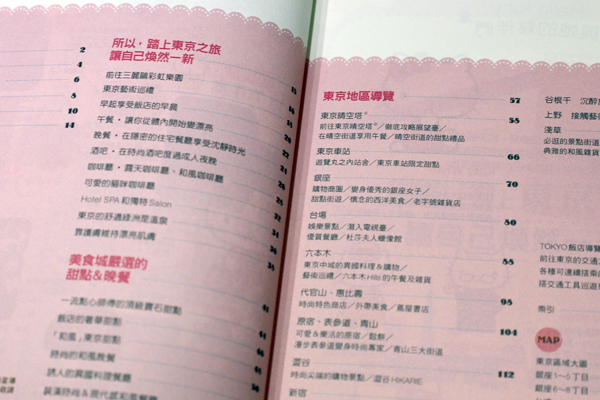 2
4
6
8
10
14
所以，踏上東京之旅
讓自己煥然一新
前往三麗鷗彩虹樂園 15
東京藝術巡禮 16
早起享受飯店的早晨 18
午餐・讓你從體內開始變漂亮 20
晚餐・在隱密的住宅餐廳享受沈靜時光 22
酒吧・在時尚酒吧度過成人夜晚 24
咖啡廳・露天咖啡廳、和風咖啡廳 26
可愛的貓咪咖啡廳
Hotel SPA和獨特Salon
東京的舒適綠洲是溫泉
靠護膚維持漂亮肌膚
美食城嚴選的
甜點&晚餐
一流點心師傅的頂級寶石甜點
飯店的奢華甜點
「和風」東京甜點
時尚的和風晚餐
誘人的異國料理餐廳
裝潢時尚&現代感和風餐廳
東京地區導覽 57
東京晴空塔® 58
前往東京晴空塔®／徹底攻略展望臺／
在晴空街道享用午餐／晴空街道的甜點禮品
東京車站 66
遊覽丸之內站舍／東京車站限定甜點
銀座 70
購物商圈／變身優秀的銀座女子／
甜點街遊／懷念的西洋美食／老字號雜貨店
台場 80
娛樂景點／潛入電視臺／
優質餐廳／杜莎夫人蠟像館
六本木 88
東京中城的異國料理&購物／
藝術巡禮／六本木Hills的午餐及雜貨
代官山、惠比壽 98
時尚特色商店／外帶美食／蔦屋書店
原宿、表參道、青山 104
可愛&療癒的原宿／鬆餅／
漫步表參道變身時尚專家／青山三大街道
澀谷 112
時尚尖端的購物景點／澀谷HIKARIE
新宿
谷根千 沉醉
上野 接觸藝
淺草
必逛的景點街道
典雅的和風雜貨
TOKYO飯店導覽
前往東京的交通工
各種可連續搭乘的
搭交通工具巡遊
索引
MAP
東京區域大圖
銀座1～5丁目
銀座6～8丁目